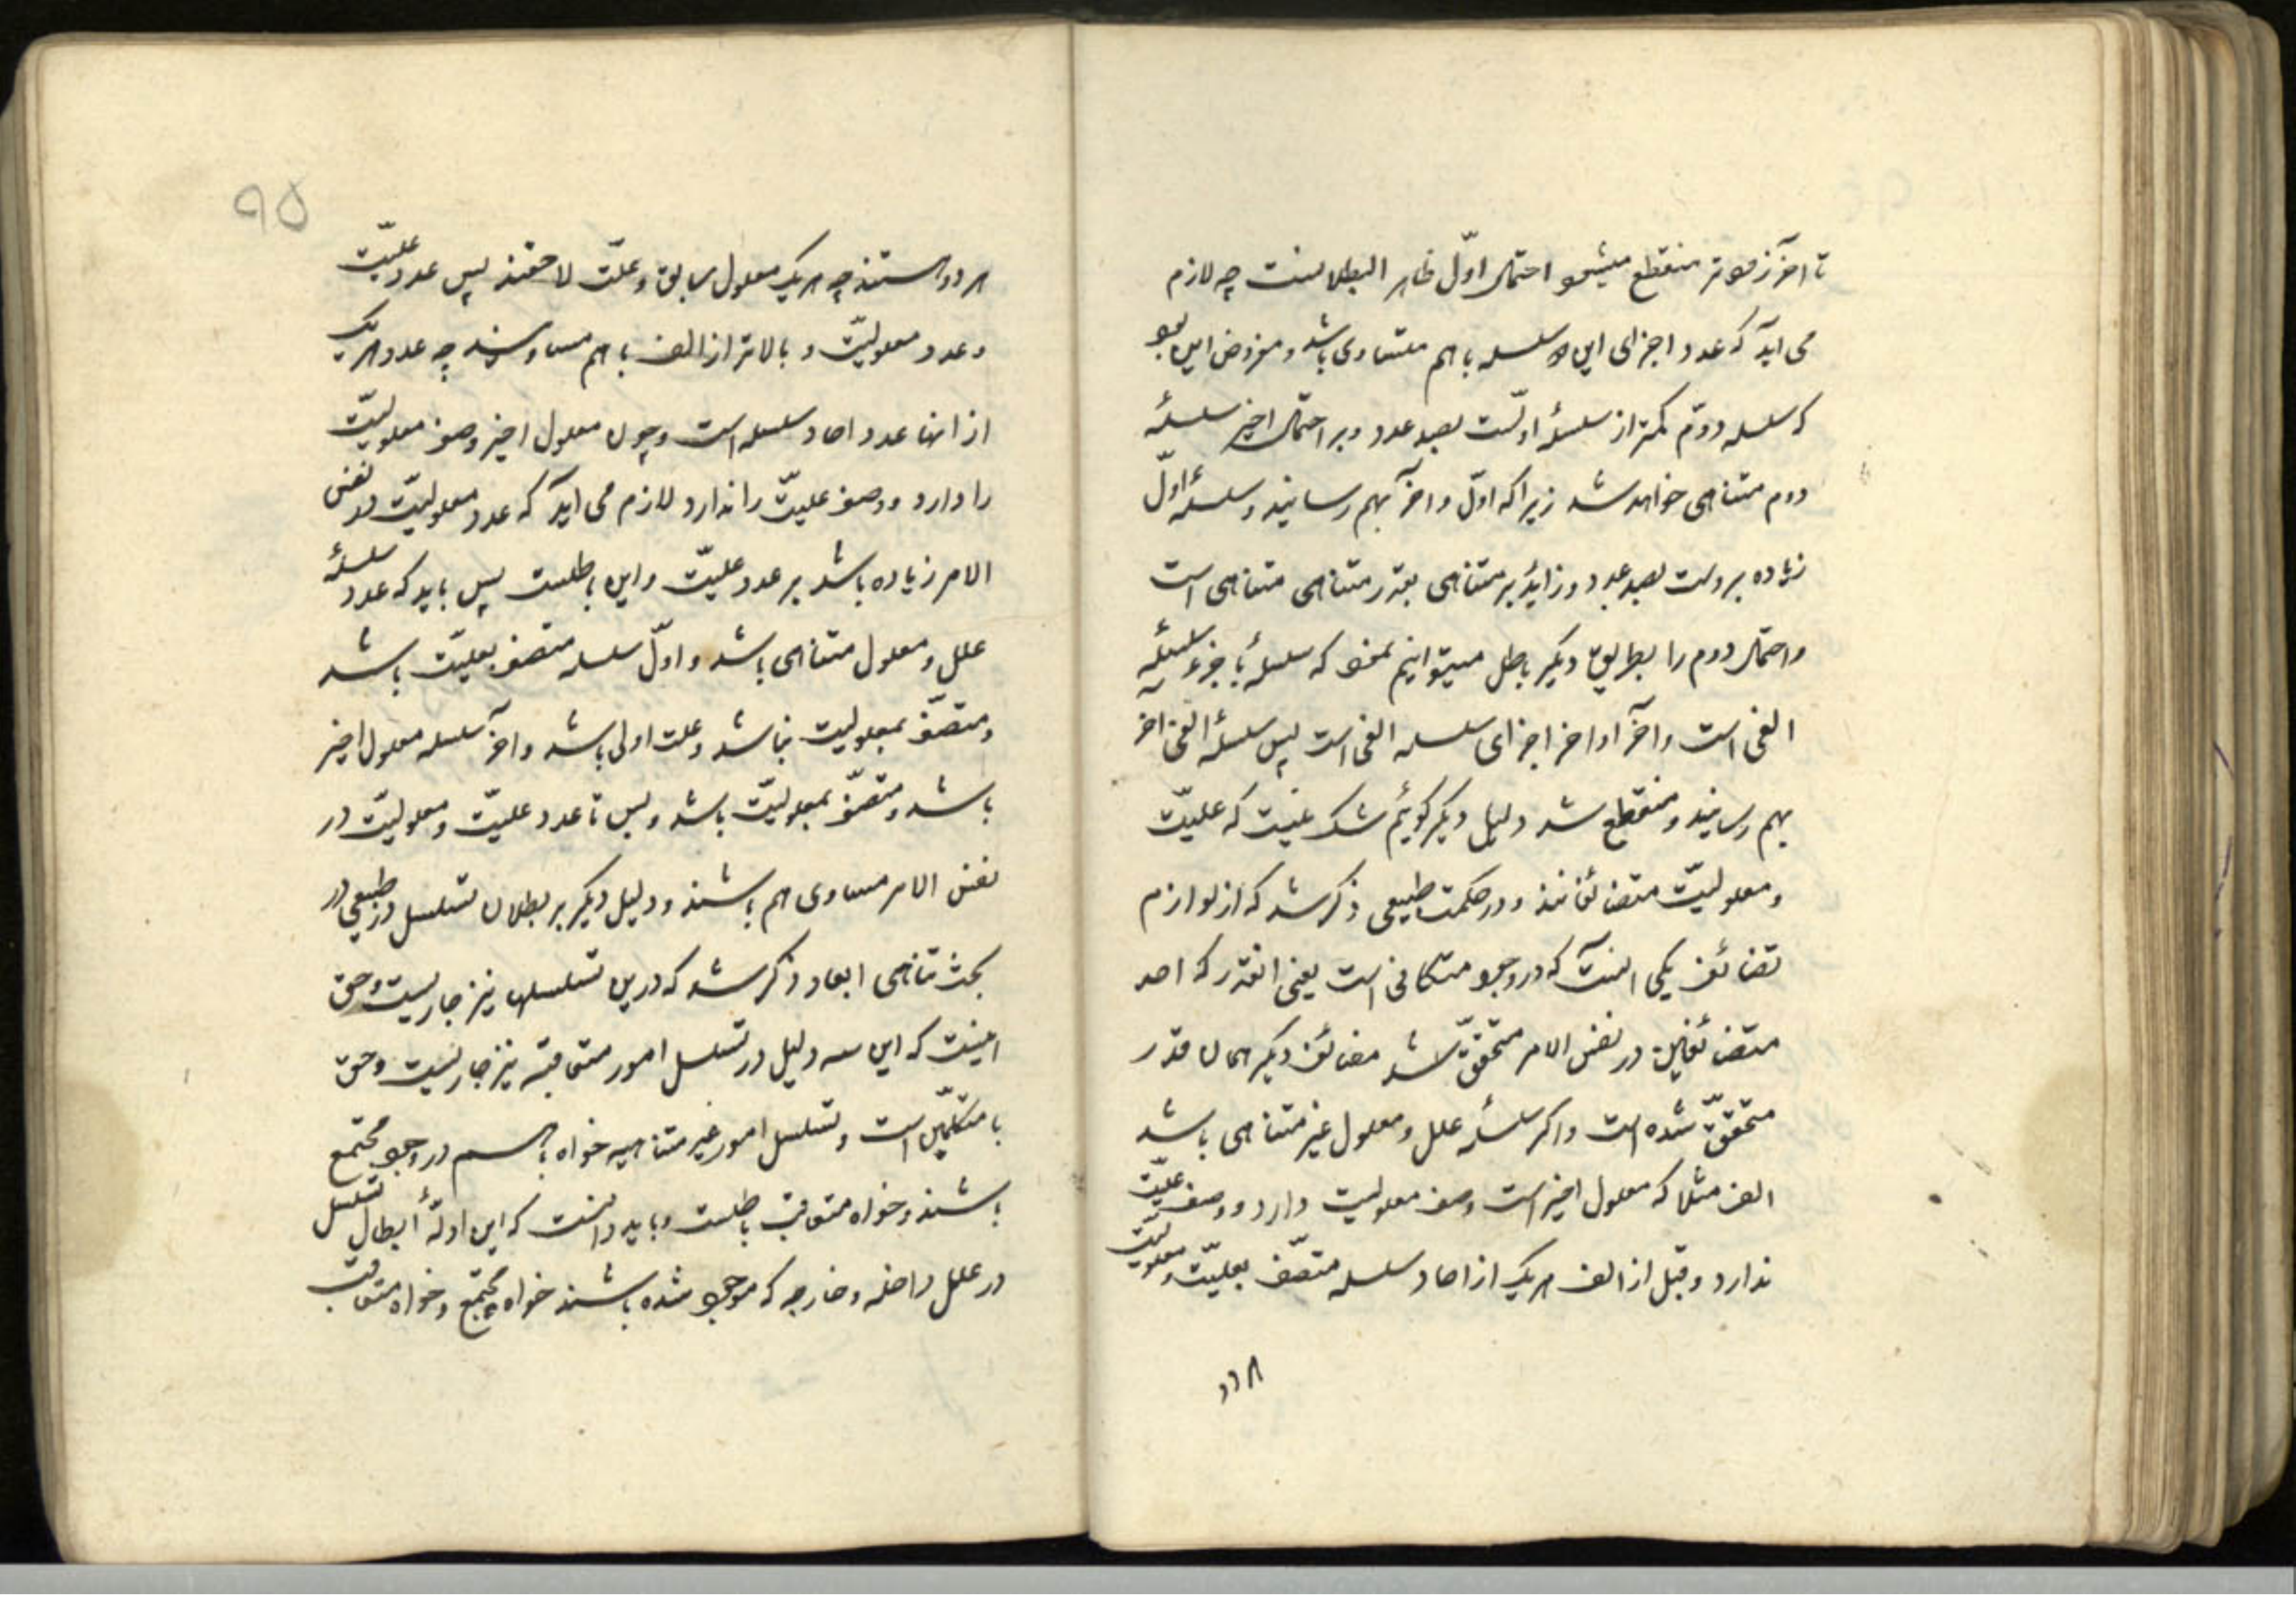 تا آخر زودتر منقطع میشود احتمال اوّل ظاهر البطلانست چه لازم
می آید که عدد اجزای این دو سلسله با هم متساوی باشد و مفروض این بود
که سلسله دوّم کمتر از سلسلهٔ اولّست بصد عدد و بر احتمال اخیر سلسلهٔ
دوم متناهی خواهد شد زیرا که اوّل و آخر بهم رسانید و سلسلهٔ اوّل
زیاده بر وست بصد عدد و زاید بر متناهی بقدر متناهی متناهی است
و احتمال دوم را بطریق دیگر باطل میتوانیم نمود که سلسلهٔ با جزء سلسلهٔ
الفی است و آخر او آخر اجزای سلسله الفی است پس سلسلهٔ الفی آخر
بهم رسانید و منقطع شد دلیل دیگر گوئیم شک نیست که علیّت
و معلولیّت متضائفانند و در حکمت طبیعی ذکر شد که از لوازم
تضائف یکی آنست که در وجود متکافی است یعنی آنقدر که احد
متضائفین در نفس الامر متحقّق شد مضائف دیگر همان قدر
متحقّق شده است و اگر سلسلهٔ علل و معلول غیر متناهی باشد
الف مثلا که معلول اخیر است وصف معلولیت دارد و وصف علیّت
ندارد و قبل از الف هر یک از احاد سلسله متصّف بعلیّت و معلولیّت
هر دو
٩٥
هر دو هستند چه هر یک معلول سابق و علّت لاحقند پس عدد علیّت
و عدد معلولیّت و بالاتر از الف با هم مساویند چه عدد هر یک
از آنها عدد احاد سلسله است و چون معلول اخیر وصف معلولیّت
را دارد و وصف علیّت را ندارد لازم می آید که عدد معلولیّت در نفس
الامر زیاده باشد بر عدد علیّت و این باطلست پس باید که عدد سلسلهٔ
علل و معلول متناهی باشد و اوّل سلسله متصف بعلیّت باشد
و متصّف بمعلولیت نباشد و علت اولی باشد و آخر سلسله معلول اخیر
باشد و متصّف بمعلولیّت باشد و بس تا عدد علیّت و معلولیّت در
نفس الامر مساوی هم باشند و دلیل دیگر بر بطلان تسلسل در طبیعی در
بحث تناهی ابعاد ذکر شد که درین تسلسلها نیز جاریست و حق
اینست که این سه دلیل در تسلسل امور متعاقبه نیز جاریست و حق
با متکلّمین است و تسلسل امور غیر متناهیه خواه با هم در وجود مجتمع
باشند و خواه متعاقب باطلست و باید دانست که این ادلّهٔ ابطال تسلسل
در علل داخله و خارجه که موجود شده باشند خواه مجتمع و خواه متعاقب